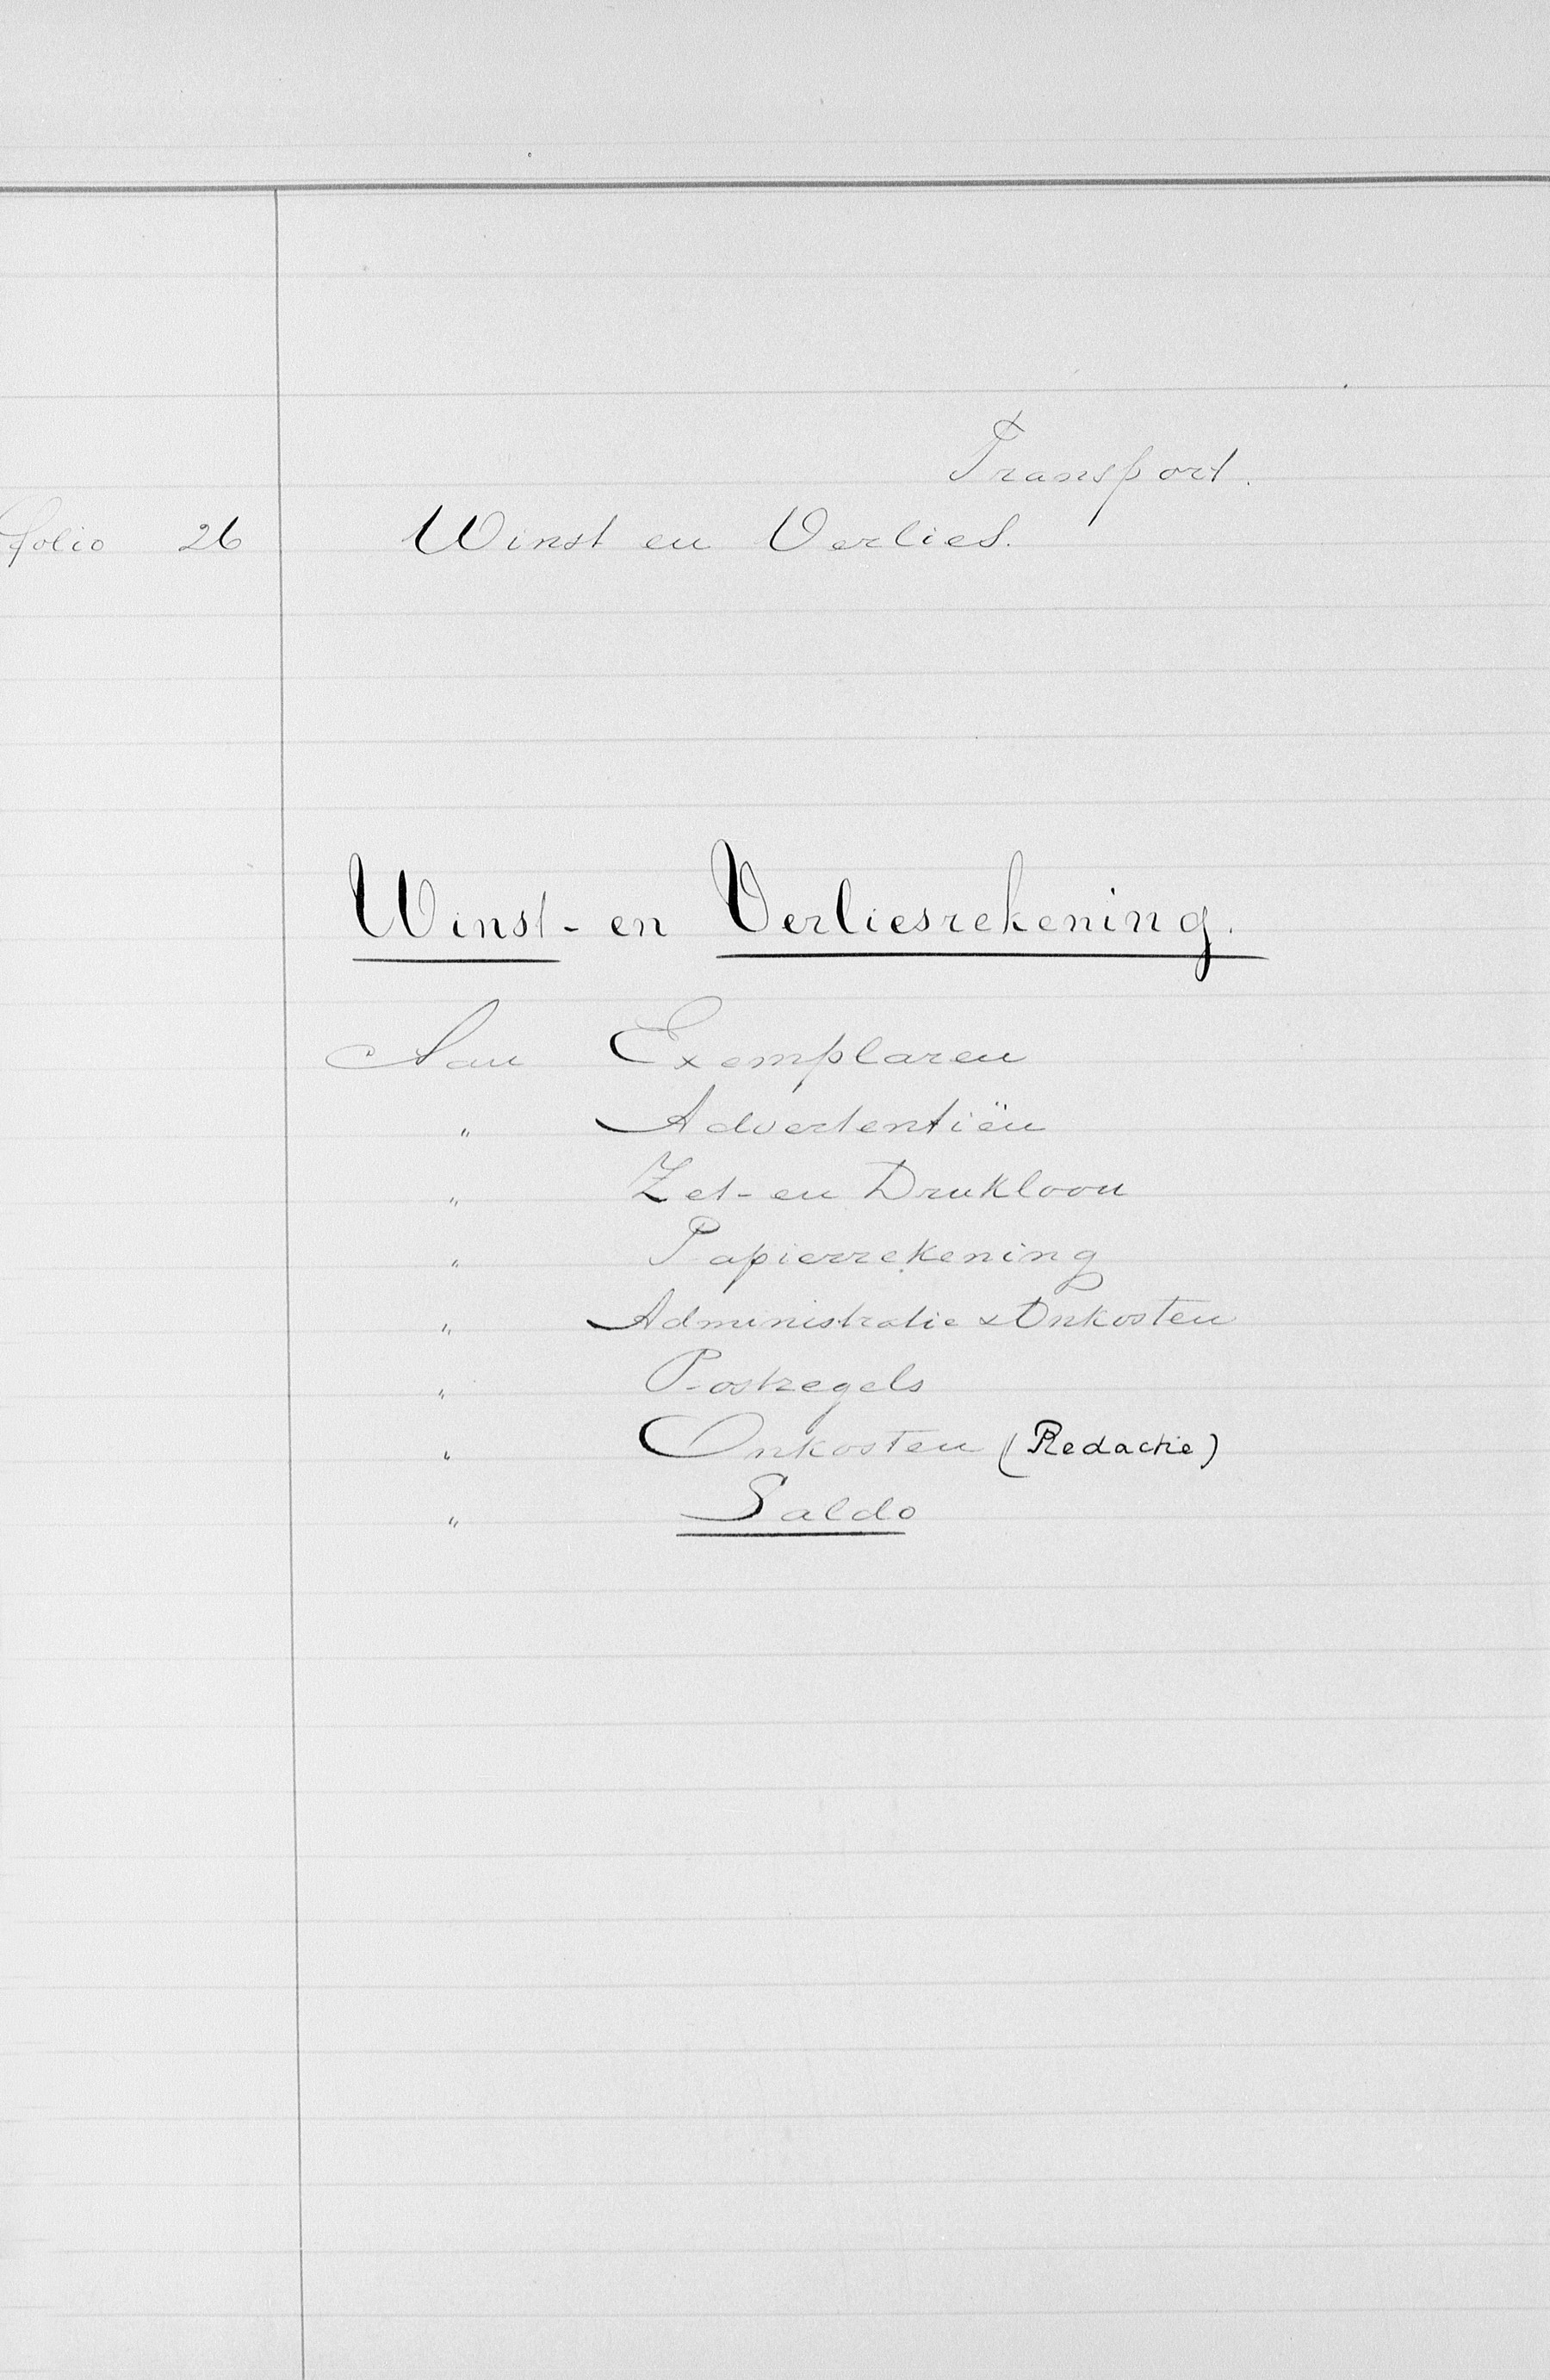 Transport.
folio 26 Winst en Verlies.
Winst- en Verliesrekening.
Aan Exemplaren
" Advertentiën
" Zet- en Drukloon
" Papierrekening
" Administratie & Onkosten
" Postzegels
" Onkosten (Redactie)
" Saldo